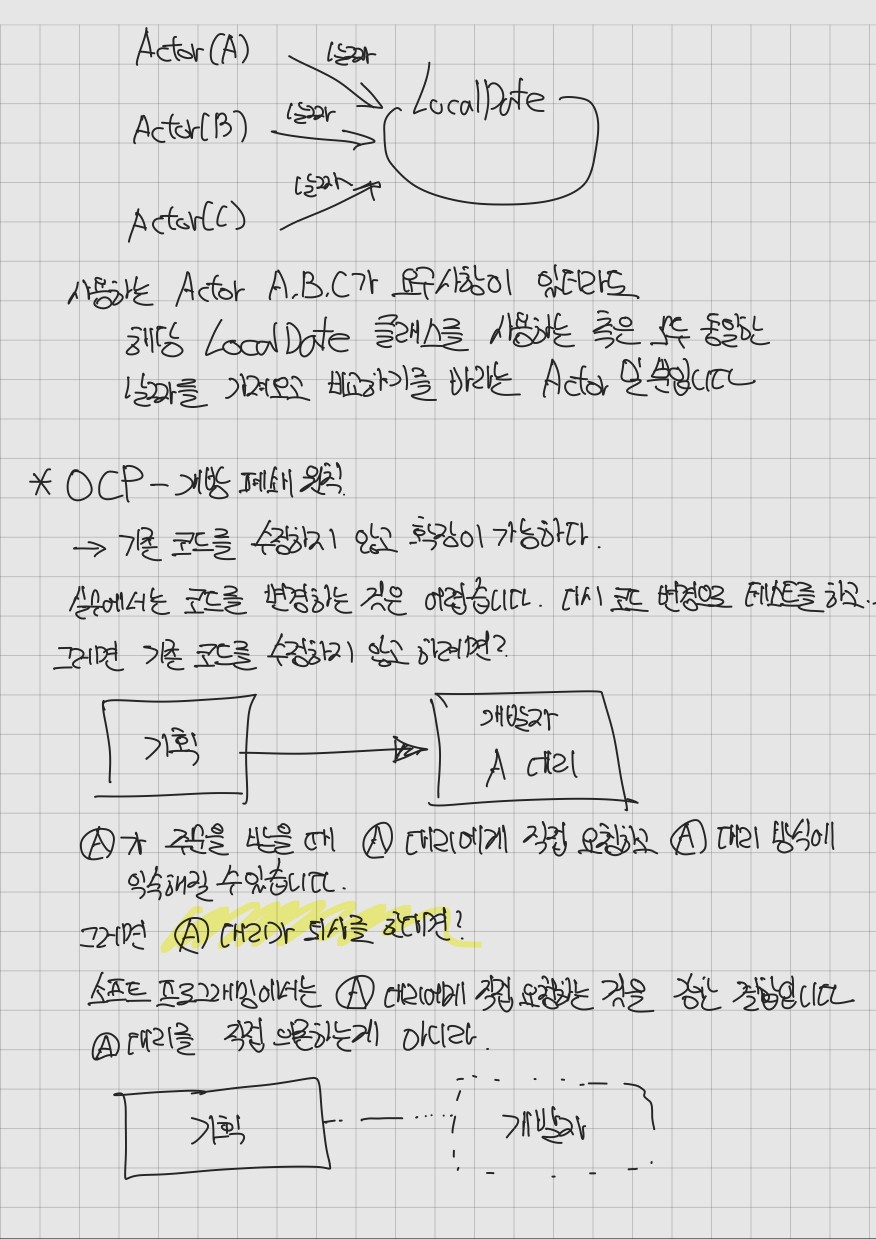 Actor(A) 날짜
LocalDate
Actor(B) 날짜
날짜
Actor(C)
사용하는 Actor A.B.C가 요구사항이 있더라도
해당 LocalDate 클래스를 사용하는 측은 모두 동일한
날짜를 가져오고 비교하기를 바라는 Actor 일뿐입니다
* OCP - 개방 폐쇄 원칙.
→ 기존 코드를 수정하지 않고 확장이 가능하다.
실무에서는 코드를 변경하는 것은 어렵습니다. 다시 코드 변경으로 테스트를 하고..
그러면 기존 코드를 수정하지 않고 하려면?
기획
개발자
A 대리
Ⓐ가 주문을 받을 때 Ⓐ 대리에게 직접 요청하고 Ⓐ 대리 방식에
익숙해질 수 있습니다.
그러면 Ⓐ 대리가 퇴사를 한다면?
소프트 프로그래밍에서는 Ⓐ 대리에게 직접 요청하는 것을 강한 결합입니다
Ⓐ 대리를 직접 의존하는게 아니라.
기획 개발자